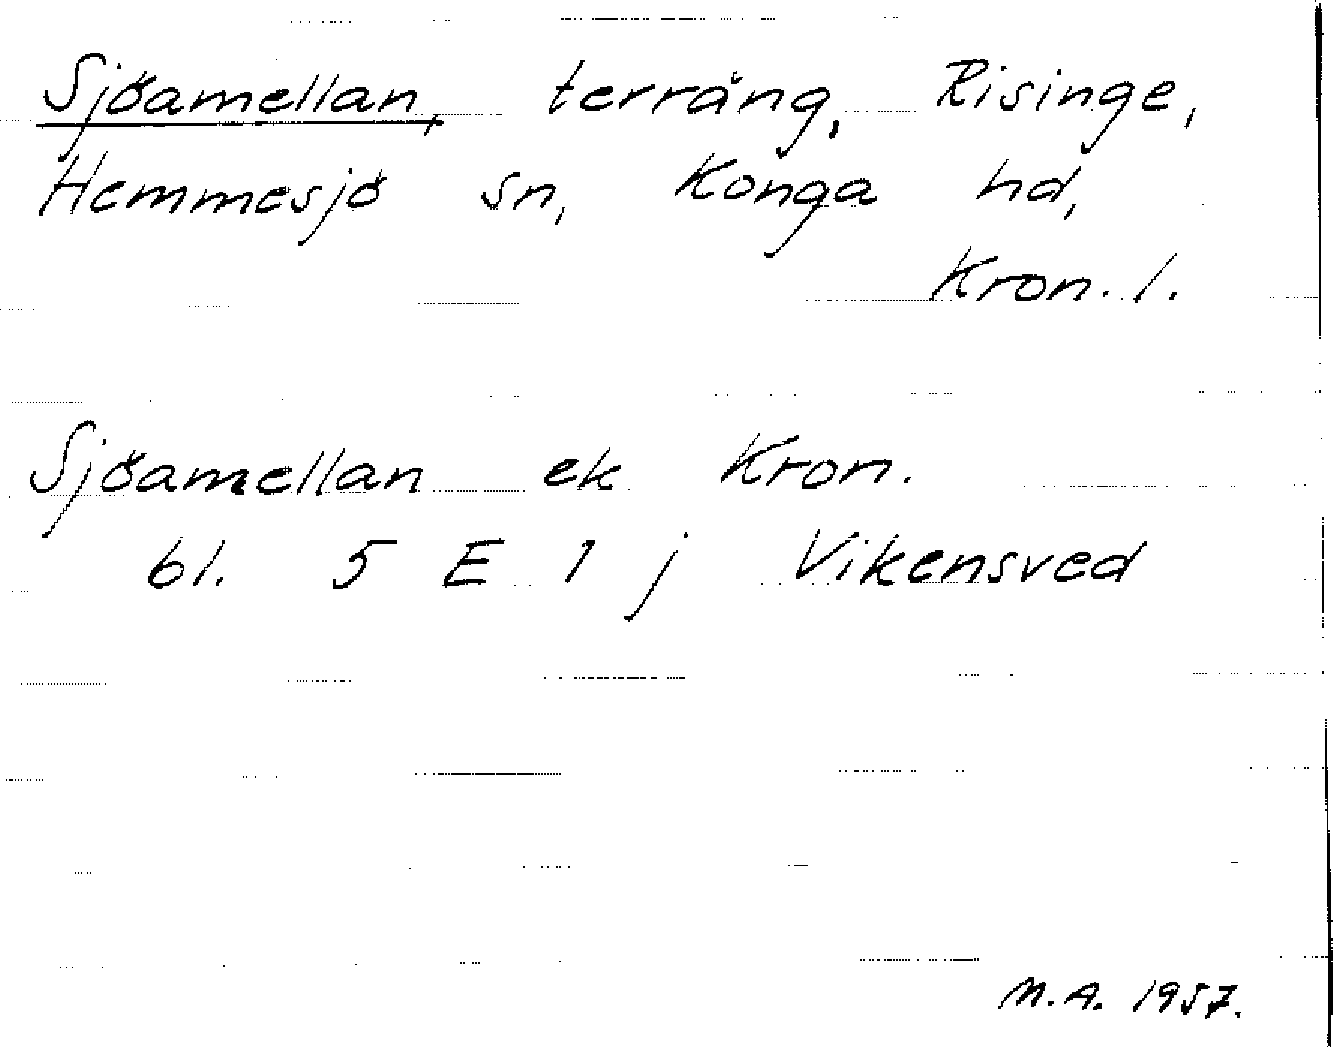 Sjöamellan, terräng, Risinge,
Hemmesjö sn, Konga hd,
Kron. l.
Sjöamellan ek Kron.
bl. 5 E 1 j Vikensved
M.A. 1957.